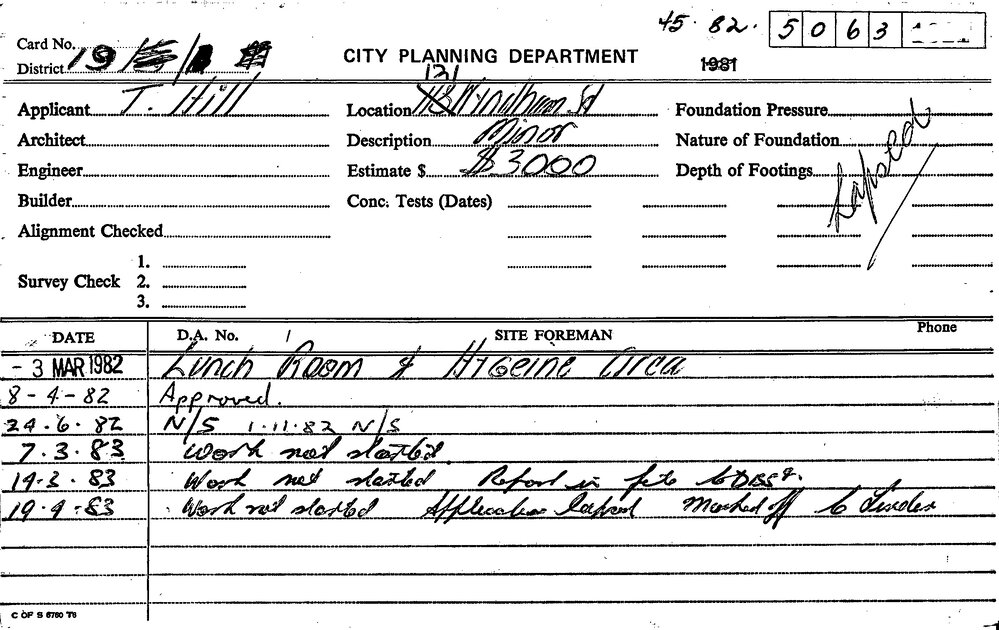 45·82· 5063
Card No.
District 19
CITY PLANNING DEPARTMENT
1981
Applicant T. Hill
Location 121 Wyndham St
Foundation Pressure
Architect
Description Minor
Nature of Foundation
Engineer
Estimate $ $3000
Depth of Footings
Lapsed
Builder
Conc: Tests (Dates)
Alignment Checked
Survey Check 1.
2.
3.
DATE D.A. No. / SITE FOREMAN Phone
- 3 MAR 1982 Lunch Room & Hygeine Area
8-4-82 Approved.
24·6·82 N/S 1·11·82 N/S
7.3.83 Work not started.
14-3·83 Work not started Report in file to
19·4-83 Work not started Application lapsed Marked off
C OF S 6760 T6